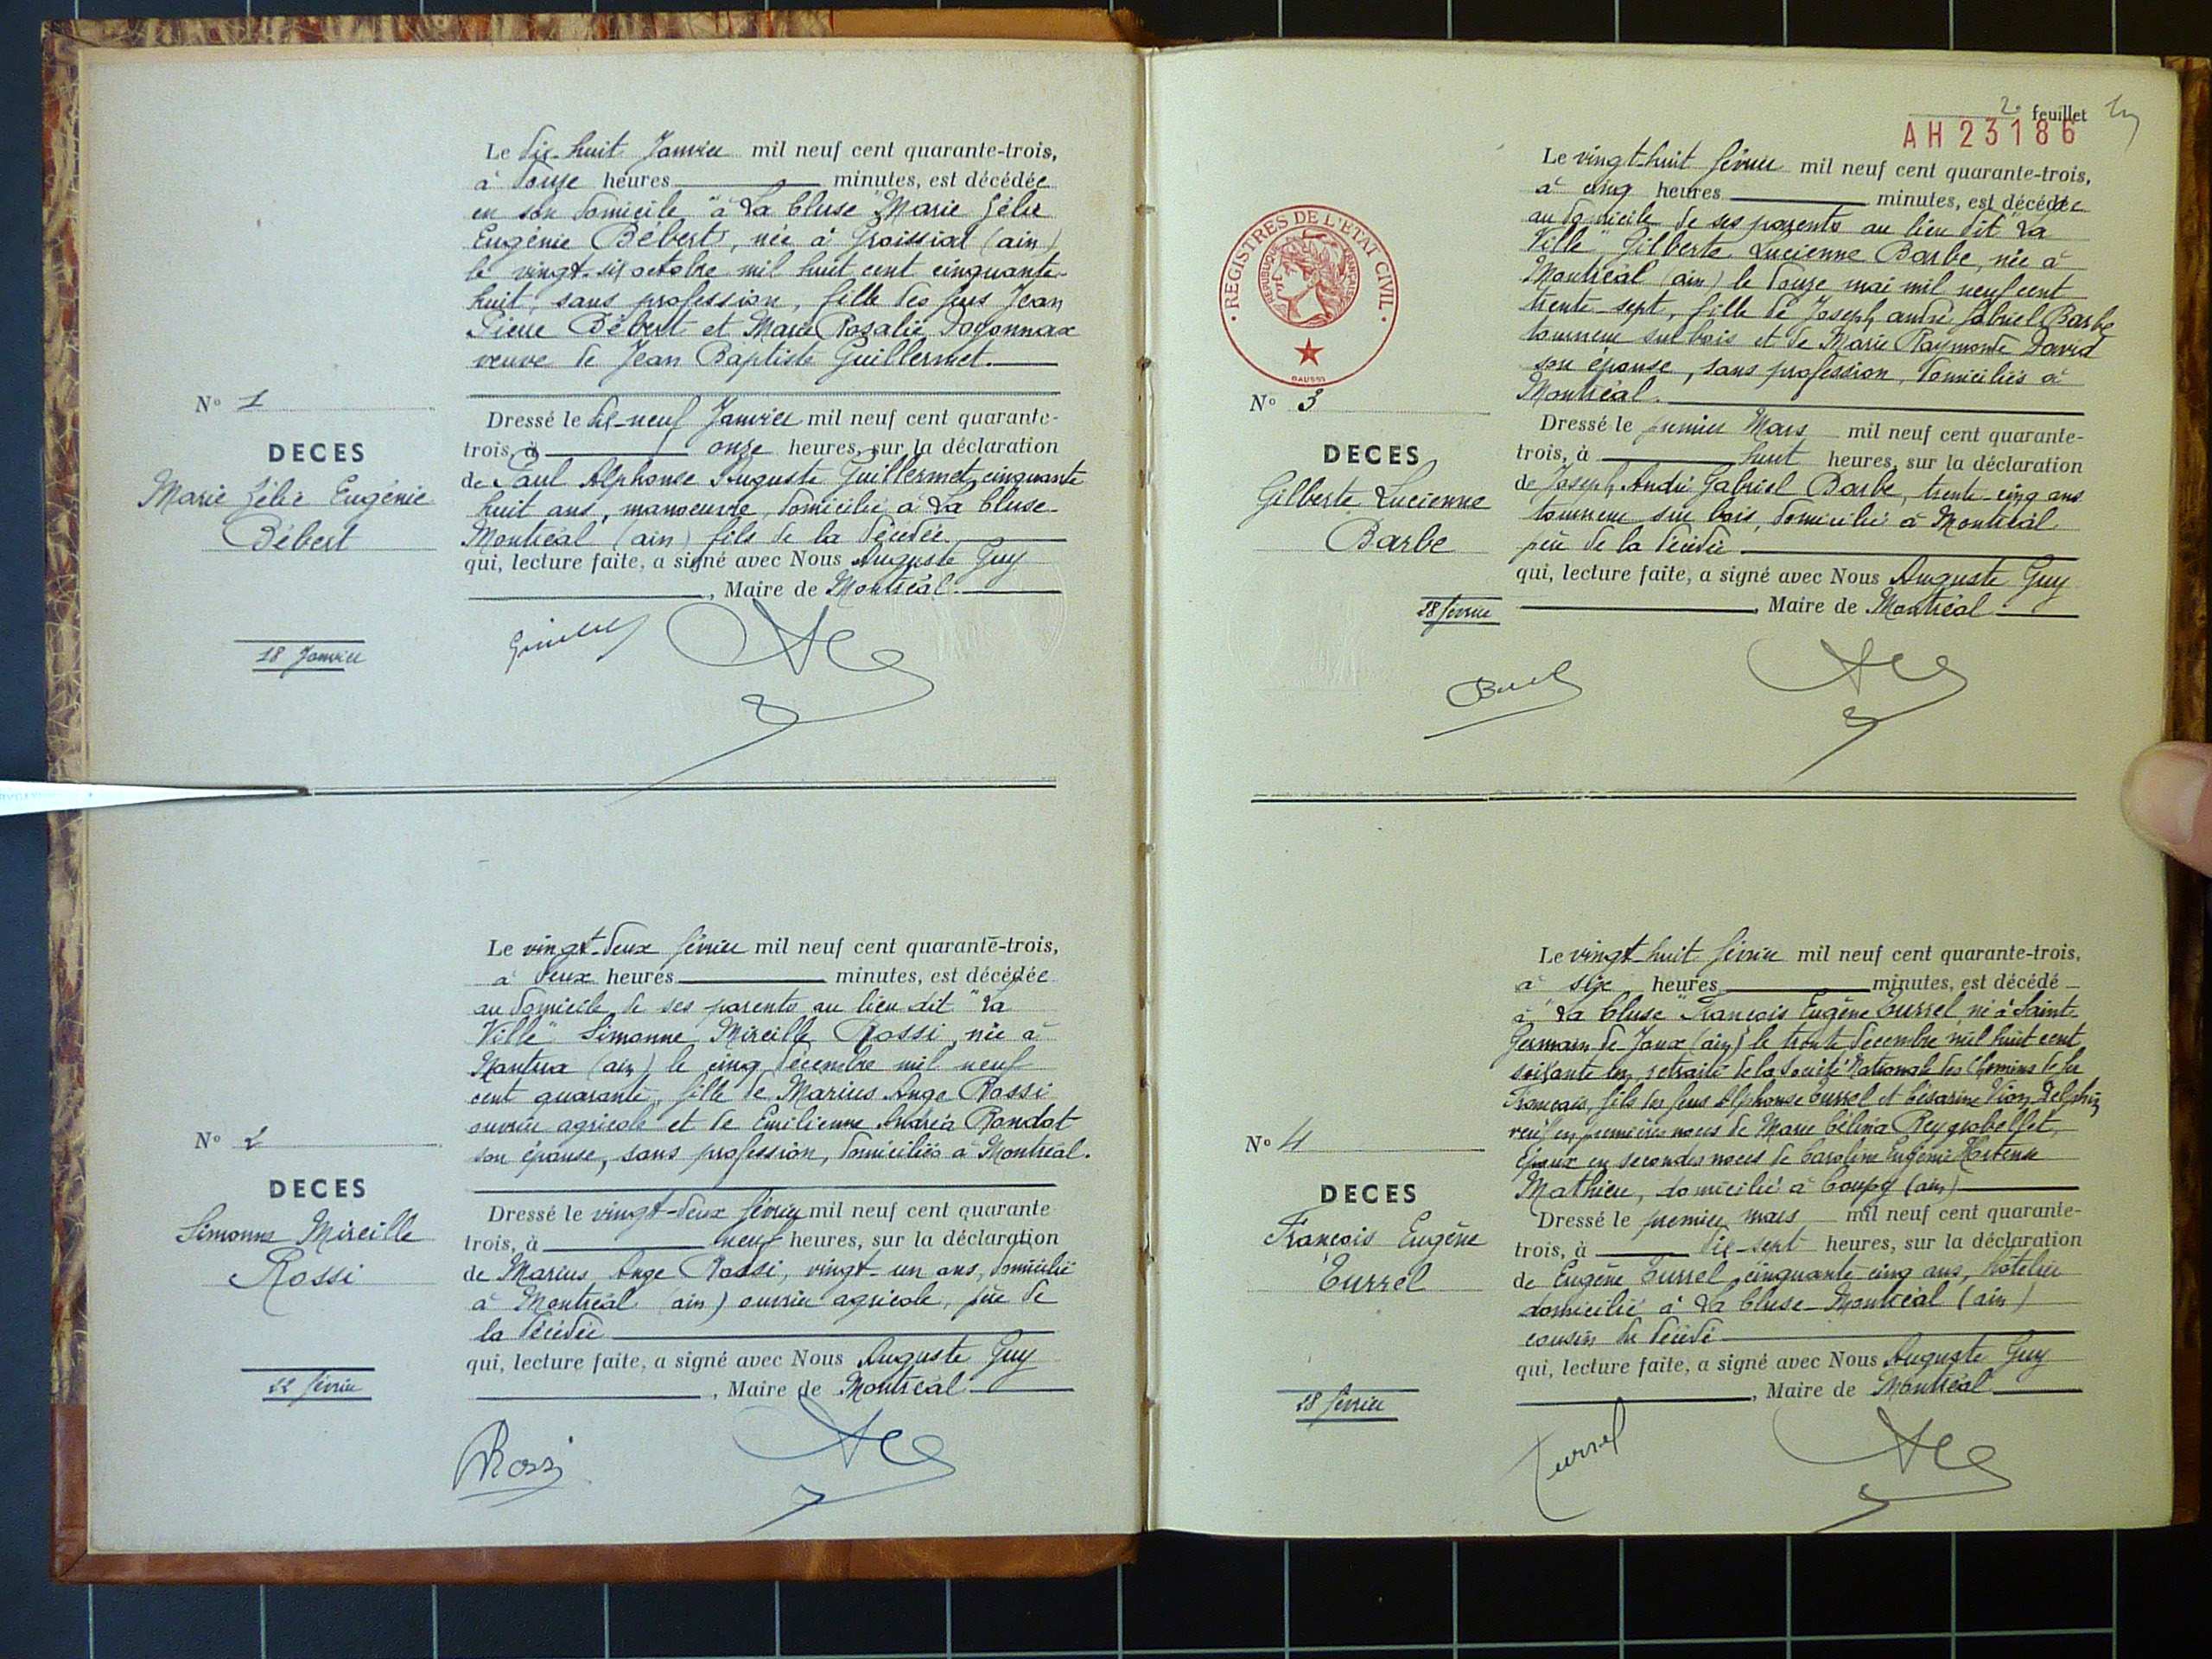 Le dix-huit Janvier mil neuf cent quarante-trois,
à douze heures minutes, est décédée
en son domicile "à La Cluse" Marie Zélie
Eugénie Débert, née à Groissiat (ain)
le vingt-six octobre mil huit cent cinquante-
huit, sans profession, fille des feus Jean
Pierre Débert et Marie Rosalie Dogonnax
veuve de Jean Baptiste Guillermet.
N° 1
DECES
Marie Zélie Eugénie
Débert
18 Janvier
Dressé le dix-neuf Janvier mil neuf cent quarante-
trois, à onze heures, sur la déclaration
de Paul Alphonse Auguste Guillermet, cinquante
huit ans, manoeuvre, domicilié à La Cluse-
Montréal (ain) fils de la décédée.
qui, lecture faite, a signé avec Nous Auguste Guy
, Maire de Montréal.
Le vingt-deux février mil neuf cent quarante-trois,
à deux heures minutes, est décédée
au domicile de ses parents au lieu dit "La
Ville" Simonne Mireille Rossi, née à
Nantua (ain) le cinq décembre mil neuf
cent quarante, fille de Marius Ange Rossi
ouvrier agricole et de Emilienne Andréa Rondot
son épouse, sans profession, domiciliés à Montréal.
N° 2
DECES
Simonne Mireille
Rossi
22 février
Dressé le vingt-deux février mil neuf cent quarante
trois, à neuf heures, sur la déclaration
de Marius Ange Rossi, vingt-un ans, domicilié
à Montréal (ain) ouvrier agricole, père de
la décédée
qui, lecture faite, a signé avec Nous Auguste Guy
, Maire de Montréal
Rossi
2e feuillet
AH 23186
REGISTRES DE L'ETAT CIVIL
REPUBLIQUE FRANÇAISE
Le vingt-huit février mil neuf cent quarante-trois,
à cinq heures minutes, est décédée
au domicile de ses parents au lieu dit "La
Ville" Gilberte Lucienne Barbe, née à
Montréal (ain) le douze mai mil neuf cent
trente-sept, fille de Joseph andré Gabriel Barbe
tourneur sur bois et de Marie Raymonde David
son épouse, sans profession, domiciliés à
Montréal.
N° 3
DECES
Gilberte Lucienne
Barbe
28 février
Dressé le premier Mars mil neuf cent quarante-
trois, à huit heures, sur la déclaration
de Joseph André Gabriel Barbe, trente-cinq ans
tourneur sur bois, domicilié à Montréal
père de la décédée
qui, lecture faite, a signé avec Nous Auguste Guy
, Maire de Montréal
Le vingt-huit février mil neuf cent quarante-trois,
à six heures minutes, est décédé
à "La Cluse" François Eugène Turrel, né à Saint-
Germain de Joux (ain) le trente décembre mil huit cent
soixante un, retraité de la Société Nationale des Chemins de fer
Français, fils des feus Alphonse Turrel et Césarine Vion Delphin
veuf en premières noces de Marie Célina Reygrobellet,
époux en secondes noces de Caroline Eugénie Hortense
Mathieu, domicilié à Coupy (ain)
N° 4
DECES
François Eugène
Turrel
28 février
Dressé le premier mars mil neuf cent quarante-
trois, à dix-sept heures, sur la déclaration
de Eugène Turrel, cinquante-cinq ans, hôtelier
domicilié à La Cluse-Montréal (ain)
cousin du décédé
qui, lecture faite, a signé avec Nous Auguste Guy
, Maire de Montréal
Turrel